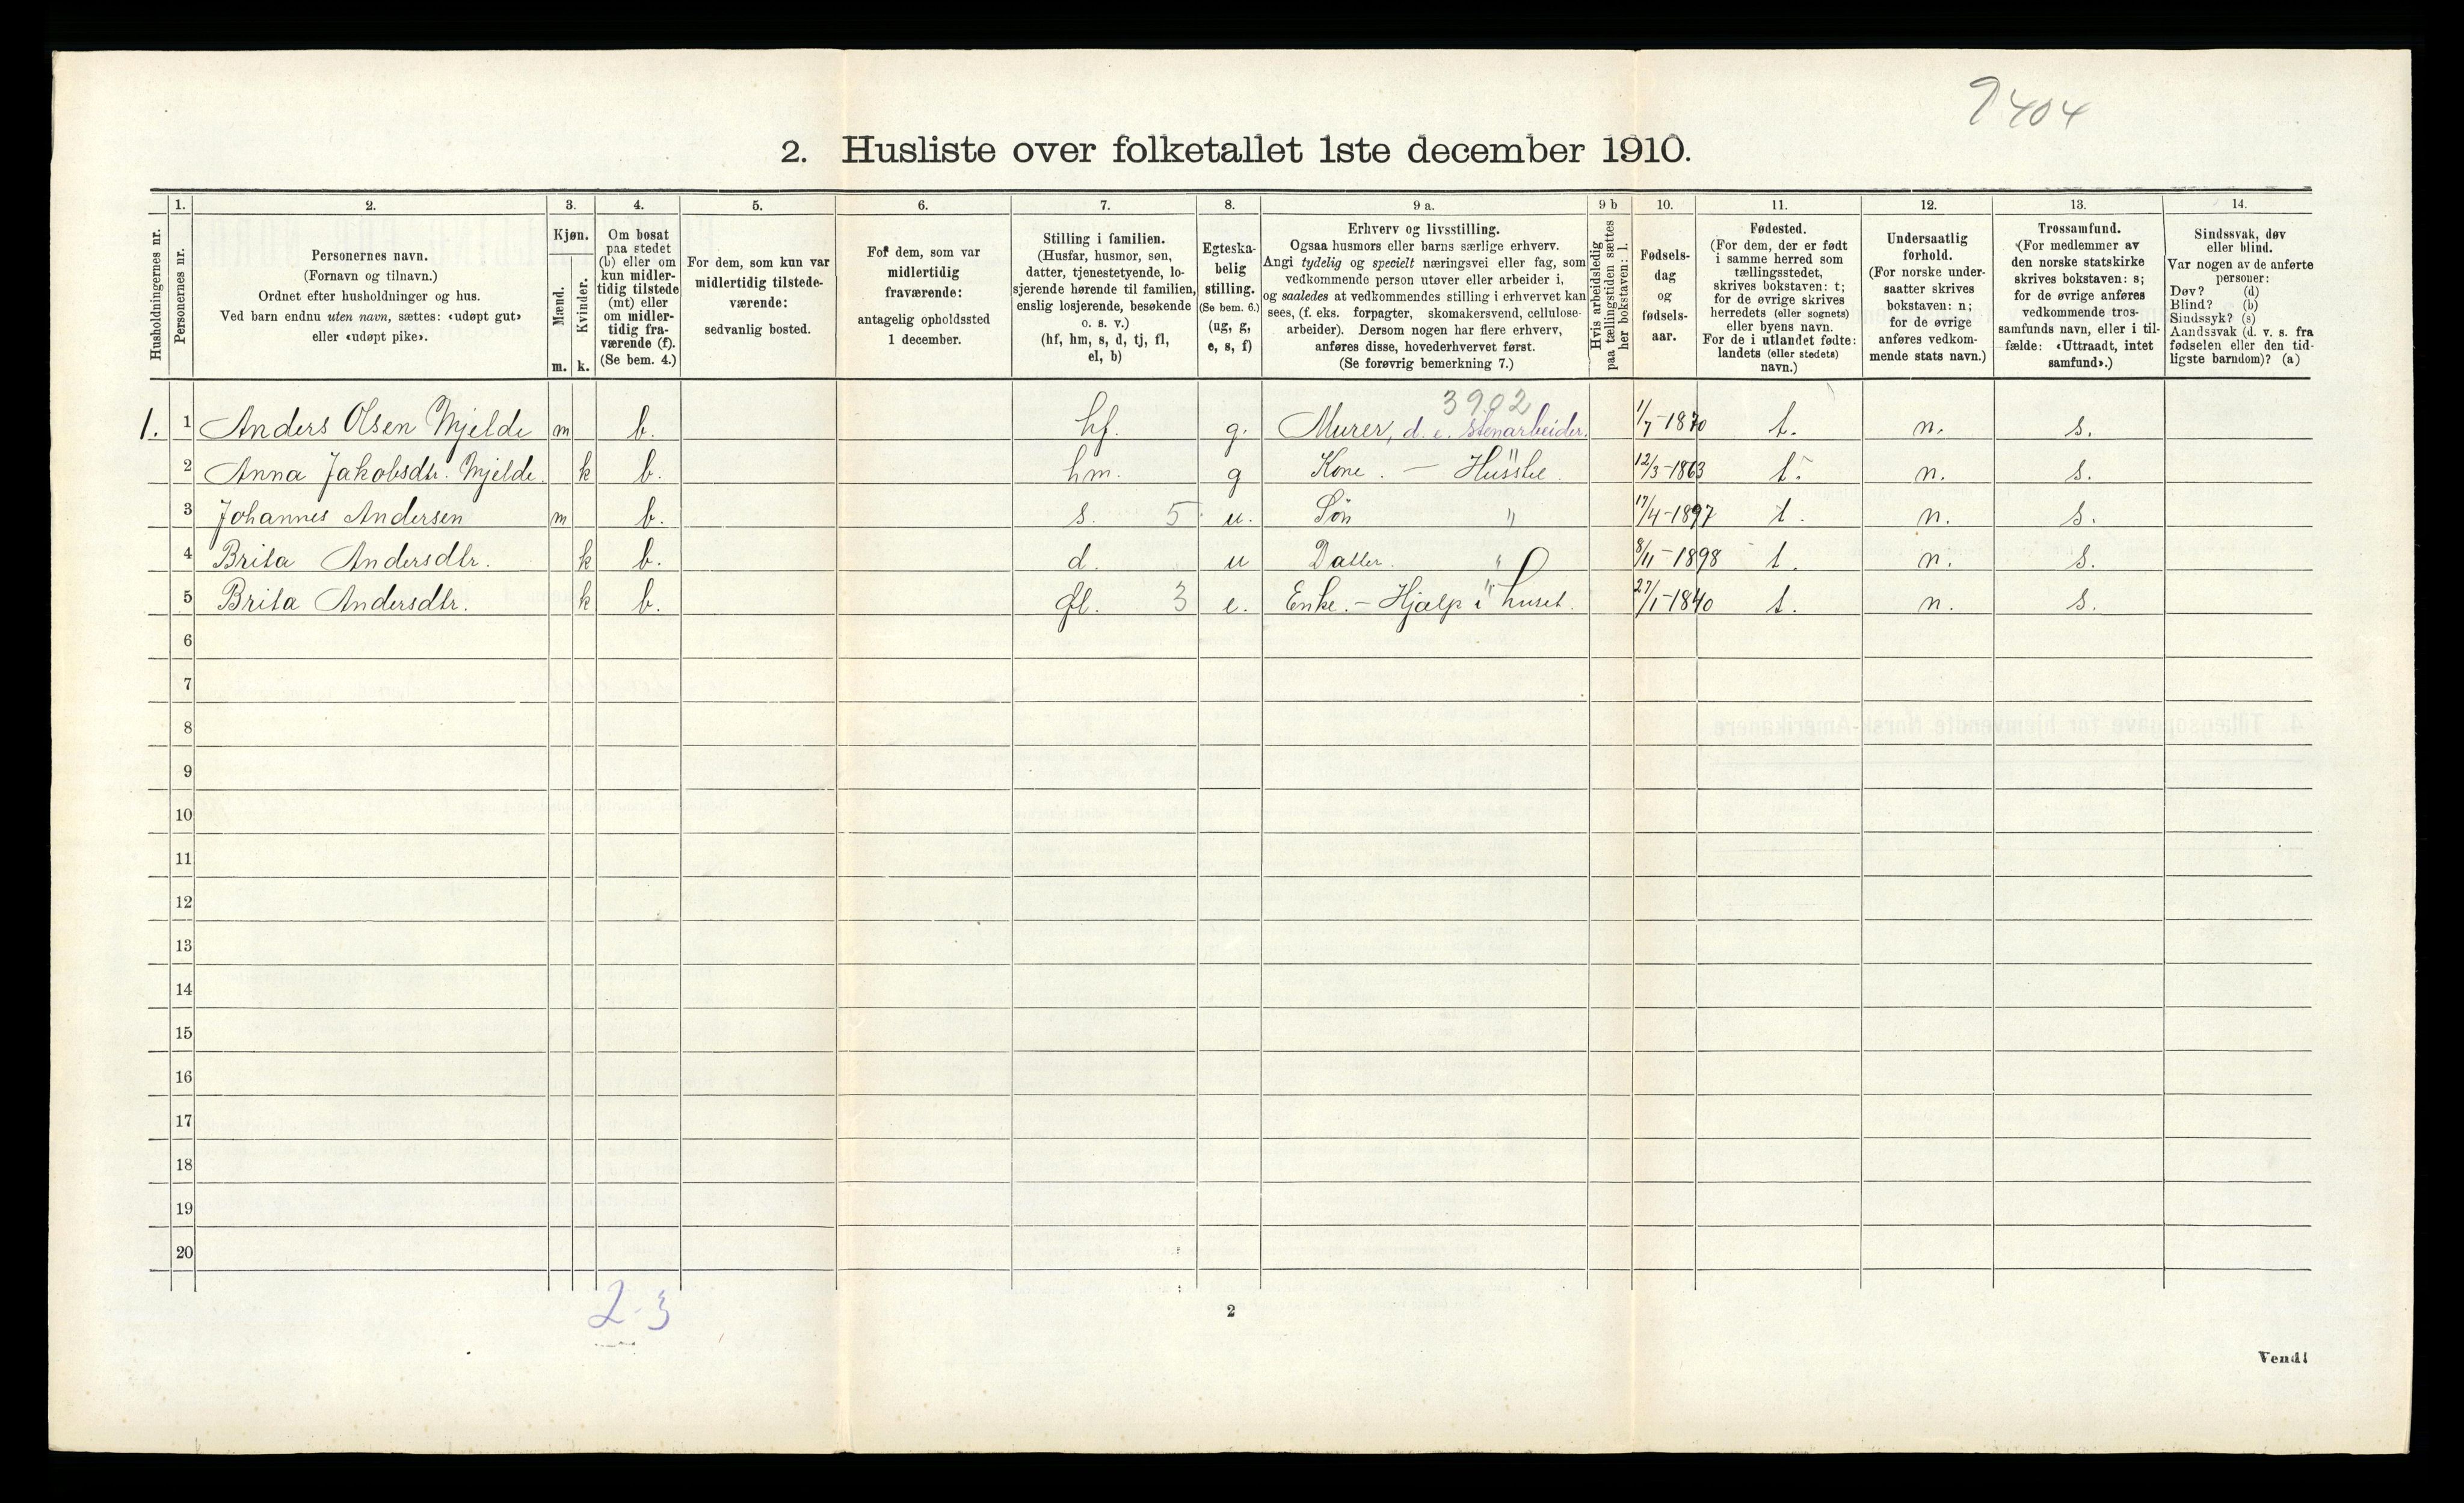 9404
2. Husliste over folketallet 1ste december 1910.
Husholdningernes nr.
1.
Personernes nr.
2.
Personernes navn.
(Fornavn og tilnavn.)
Ordnet efter husholdninger og hus.
Ved barn endnu uten navn, sættes: «udøpt gut»
eller «udøpt pike».
3.
Kjøn.
Mænd.
m.
Kvinder.
k.
4.
Om bosat
paa stedet
(b) eller om
kun midler-
tidig tilstede
(mt) eller
om midler-
tidig fra-
værende (f).
(Se bem. 4.)
5.
For dem, som kun var
midlertidig tilstede-
værende:
sedvanlig bosted.
6.
For dem, som var
midlertidig
fraværende:
antagelig opholdssted
1 december.
7.
Stilling i familien.
(Husfar, husmor, søn,
datter, tjenestetyende, lo-
sjerende hørende til familien,
enslig losjerende, besøkende
o. s. v.)
(hf, hm, s, d, tj, fl,
el, b)
8.
Egteska-
belig
stilling.
(Se bem. 6.)
(ug, g,
e, s, f)
9 a.
Erhverv og livsstilling.
Ogsaa husmors eller barns særlige erhverv.
Angi tydelig og specielt næringsvei eller fag, som
vedkommende person utøver eller arbeider i,
og saaledes at vedkommendes stilling i erhvervet kan
sees, (f. eks. forpagter, skomakersvend, cellulose-
arbeider). Dersom nogen har flere erhverv,
anføres disse, hovederhvervet først.
(Se forøvrig bemerkning 7.)
9 b
Hvis arbeidsledig
paa tællingstiden sættes
her bokstaven: l.
10.
Fødsels-
dag
og
fødsels-
aar.
11.
Fødested.
(For dem, der er født
i samme herred som
tællingsstedet,
skrives bokstaven: t;
for de øvrige skrives
herredets (eller sognets)
eller byens navn.
For de i utlandet fødte:
landets (eller stedets)
navn.)
12.
Undersaatlig
forhold.
(For norske under-
saatter skrives
bokstaven: n;
for de øvrige
anføres vedkom-
mende stats navn.)
13.
Trossamfund.
(For medlemmer av
den norske statskirke
skrives bokstaven: s;
for de øvrige anføres
vedkommende tros-
samfunds navn, eller i til-
fælde: «Uttraadt, intet
samfund».)
14.
Sindssvak, døv
eller blind.
Var nogen av de anførte
personer:
Døv? (d)
Blind? (b)
Sindssyk? (s)
Aandssvak (d. v. s. fra
fødselen eller den tid-
ligste barndom)? (a)
3902
1. 1 Anders Olsen Mjelde m b. hf. g. Murer, d. e. stenarbeider. 1/7-1870 t. n. s.
2 Anna Jakobsdtr. Mjelde. k b. hm. g Kone. — Husstel. 12/3-1863 t. n. s.
3 Johannes Andersen m b. s. 5 u. Søn " 17/4-1897 t. n. s.
4 Brita Andersdtr. k b. d. u Datter. " 8/11-1898 t. n. s.
5 Brita Andersdtr. k b. fl. 3 e. Enke. — Hjælp i huset. 27/1-1840 t. n. s.
6
7
8
9
10
11
12
13
14
15
16
17
18
19
20
2-3
2
Vend!